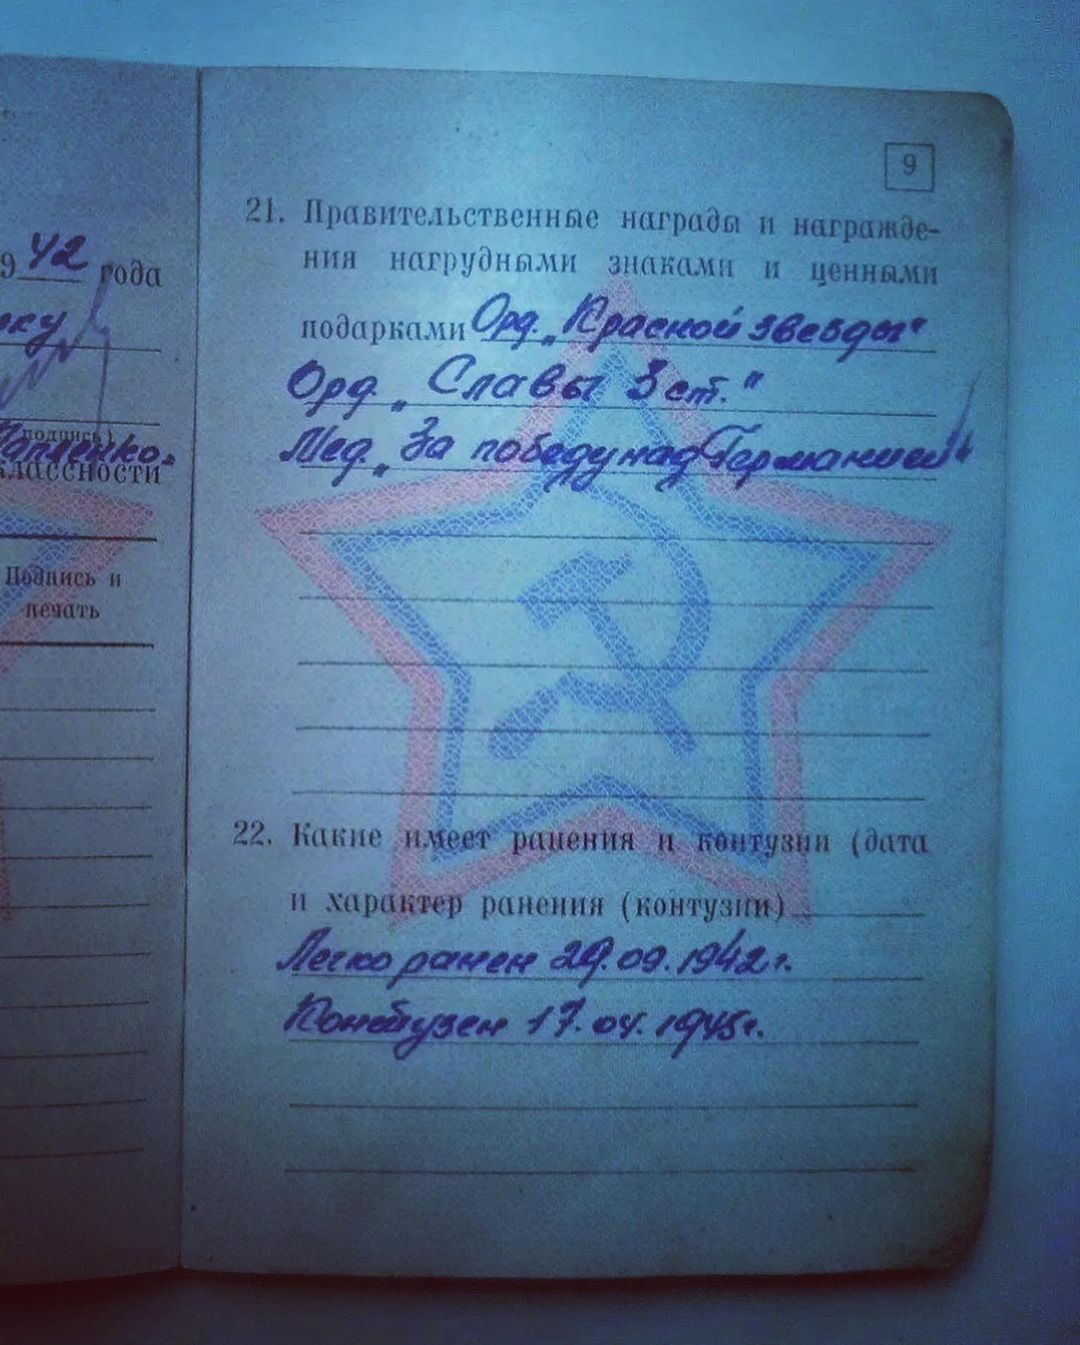 9
42 года
(подпись)
классности
Подпись и
печать
21. Правительственные награды и награжде-
ния нагрудными знаками и ценными
подарками Орд. „Красной звезды"
Орд. „Славы 3 ст."
Мед. „За победу над Германией"
22. Какие имеет ранения и контузии (дата
и характер ранения (контузии)
Легко ранен 29.09.1942 г.
Контузен 17.04.1945 г.